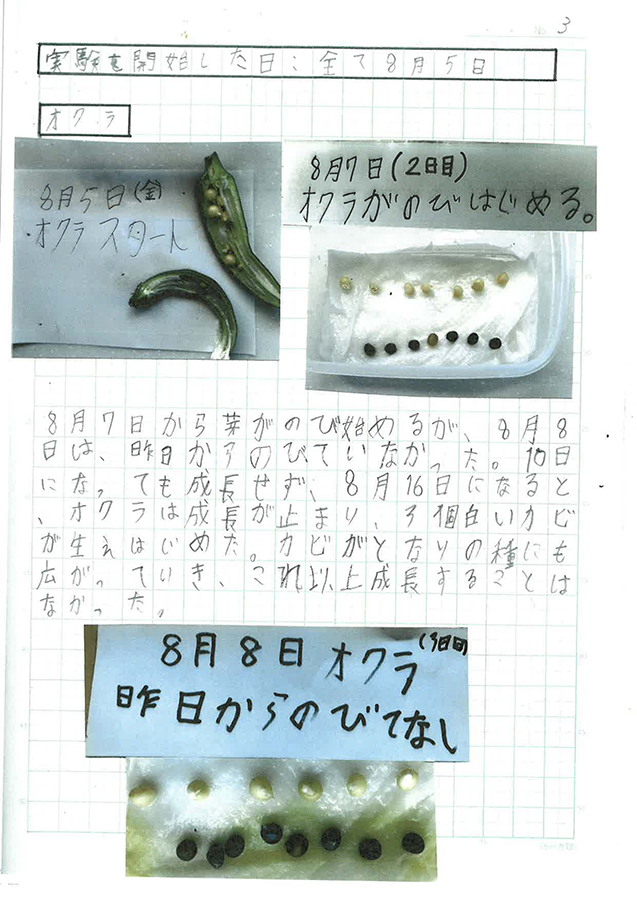 3
実験を開始した日:全て8月5日
オクラ
8月5日(金)
オクラスタート
8月7日(2日目)
オクラがのびはじめる。
8月7日から芽がのび始めるが、8月8
日は、昨日からのびていなかった。10日
になっても成長せず、8月16日になると
、オクラは成長が止まり、3個白いカビ
が生えはじめた。カビがとなりの種にも
広がっていき、これ以上成長することは
なかった。
8月8日オクラ(3日目)
昨日からのびてなし